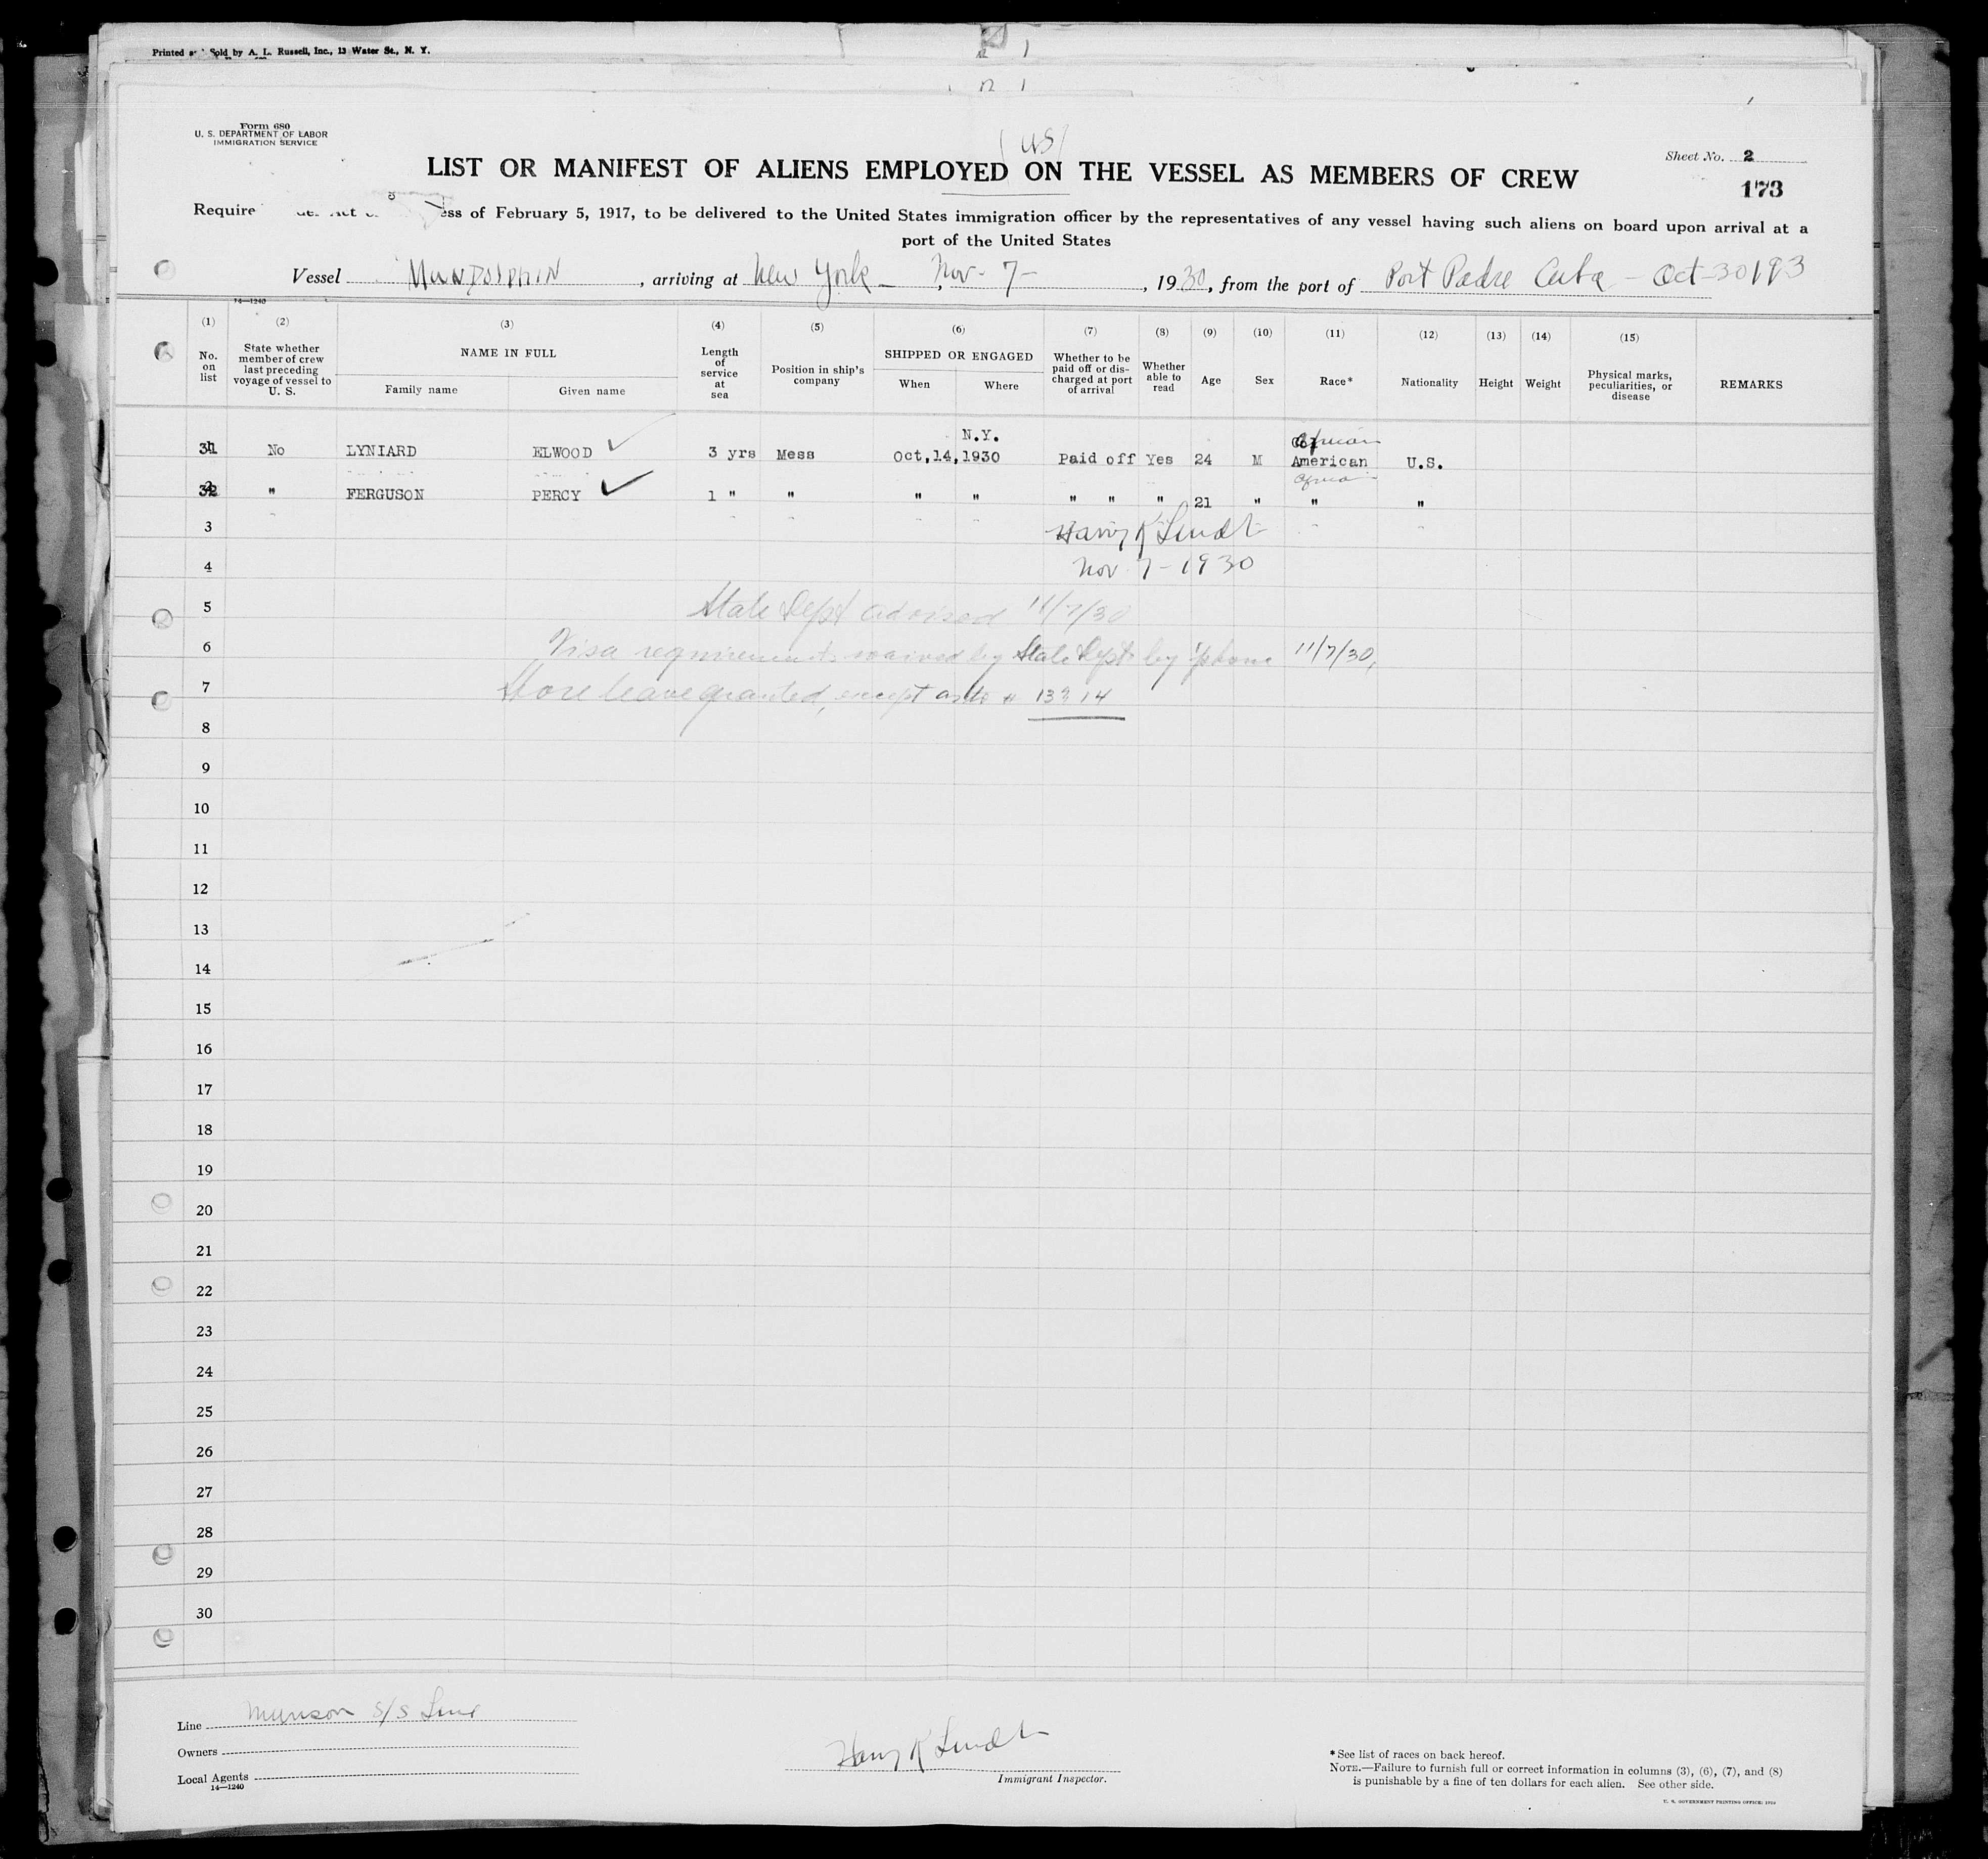 Printed Sold by A. L. Russell, Inc., 13 Water St., N. Y.
Form 680
U. S. DEPARTMENT OF LABOR
IMMIGRATION SERVICE
US
Sheet No. 2
LIST OR MANIFEST OF ALIENS EMPLOYED ON THE VESSEL AS MEMBERS OF CREW
173
Require ess of February 5, 1917, to be delivered to the United States immigration officer by the representatives of any vessel having such aliens on board upon arrival at a
port of the United States
Vessel MUNDOLPHIN, arriving at New York Nov- 7-, 1930, from the port of Port Padre Cuba - Oct-30 193
14—1240
(1) (2) (3) (4) (5) (6) (7) (8) (9) (10) (11) (12) (13) (14) (15)
No. on list
State whether member of crew last preceding voyage of vessel to U. S.
NAME IN FULL
Family name Given name
Length of service at sea
Position in ship's company
SHIPPED OR ENGAGED
When Where
Whether to be paid off or discharged at port of arrival
Whether able to read
Age
Sex
Race*
Nationality
Height
Weight
Physical marks, peculiarities, or disease
REMARKS
N.Y. African
31 No LYNIARD ELWOOD 3 yrs Mess Oct,14,1930 Paid off Yes 24 M American U.S.
African
32 " FERGUSON PERCY 1 " " " " " " " 21 " " "
3 Harry K Lindt
4 Nov 7-1930
5 State Dept advised 11/7/30
6 Visa requirements waived by State Dept by 'phone 11/7/30,
7 Shore leave granted, except as to #
8
9
10
11
12
13
14
15
16
17
18
19
20
21
22
23
24
25
26
27
28
29
30
Line Munson S/S Line
Owners
Local Agents
14—1240
Harry K Lindt
Immigrant Inspector.
*See list of races on back hereof.
NOTE.—Failure to furnish full or correct information in columns (3), (6), (7), and (8)
is punishable by a fine of ten dollars for each alien. See other side.
U. S. GOVERNMENT PRINTING OFFICE: